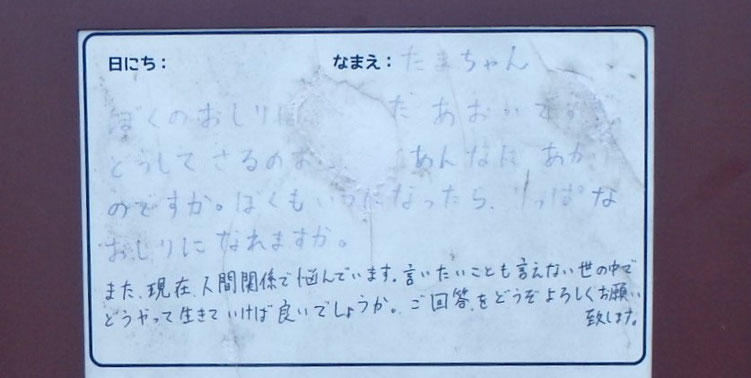 日にち： なまえ：たまちゃん
ぼくのおしりは だ あおいです
どうして さるのお あんなに あか
のですか。ぼくも になったら、りっぱな
おしりに なれますか。
また、現在、人間関係で悩んでいます。言いたいことも言えない世の中で
どうやって生きていけば良いでしょうか。ご回答、をどうぞよろしくお願い
致します。